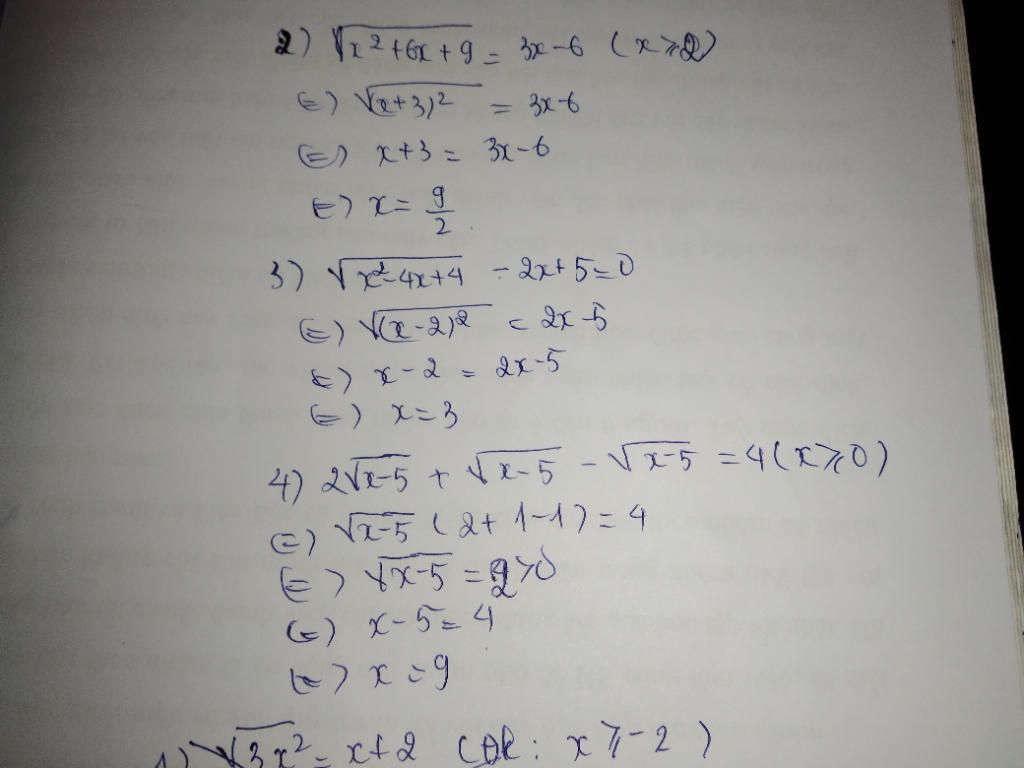 2) √(x²+6x+9) = 3x-6 (x≥2)
⇔ √(x+3)² = 3x-6
⇔ x+3 = 3x-6
⇔ x = 9/2
3) √(x²-4x+4) - 2x+5=0
⇔ √(x-2)² = 2x-5
⇔ x-2 = 2x-5
⇔ x=3
4) 2√(x-5) + √(x-5) - √(x-5) = 4 (x≥0)
⇔ √(x-5) (2+1-1) = 4
⇔ √(x-5) = 2>0
⇔ x-5=4
⇔ x=9
√(3x²) = x+2 (đk: x≥-2)